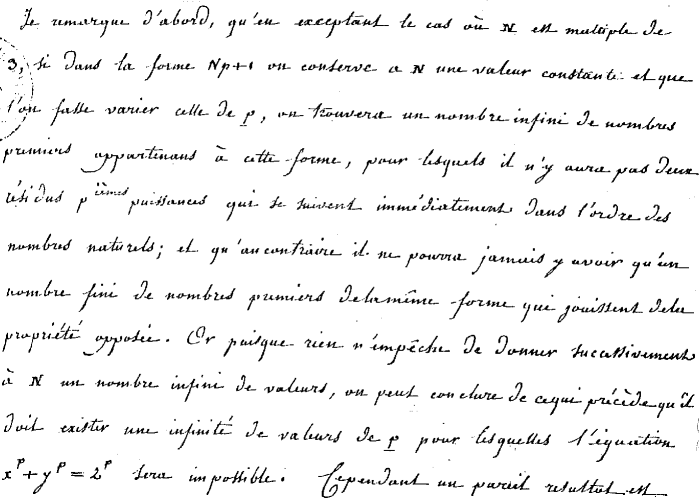 Je remarque d'abord, qu'en exceptant le cas où N est multiple de
3, si dans la forme Np+1 on conserve a N une valeur constante et que
l'on fasse varier celle de p, on trouvera un nombre infini de nombres
premiers appartenans à cette forme, pour lesquels il n'y aura pas deux
résidus p ièmes puissances qui se suivent immédiatement dans l'ordre des
nombres naturels; et qu'au contraire il ne pourra jamais y avoir qu'un
nombre fini de nombres premiers de la même forme qui jouissent de la
propriété opposée. Or puisque rien n'empêche de donner successivement
à N un nombre infini de valeurs, on peut conclure de ce qui précède qu'il
doit exister une infinité de valeurs de p pour lesquelles l'équation
x^p + y^p = 2^p sera impossible. Cependant un pareil resultat est